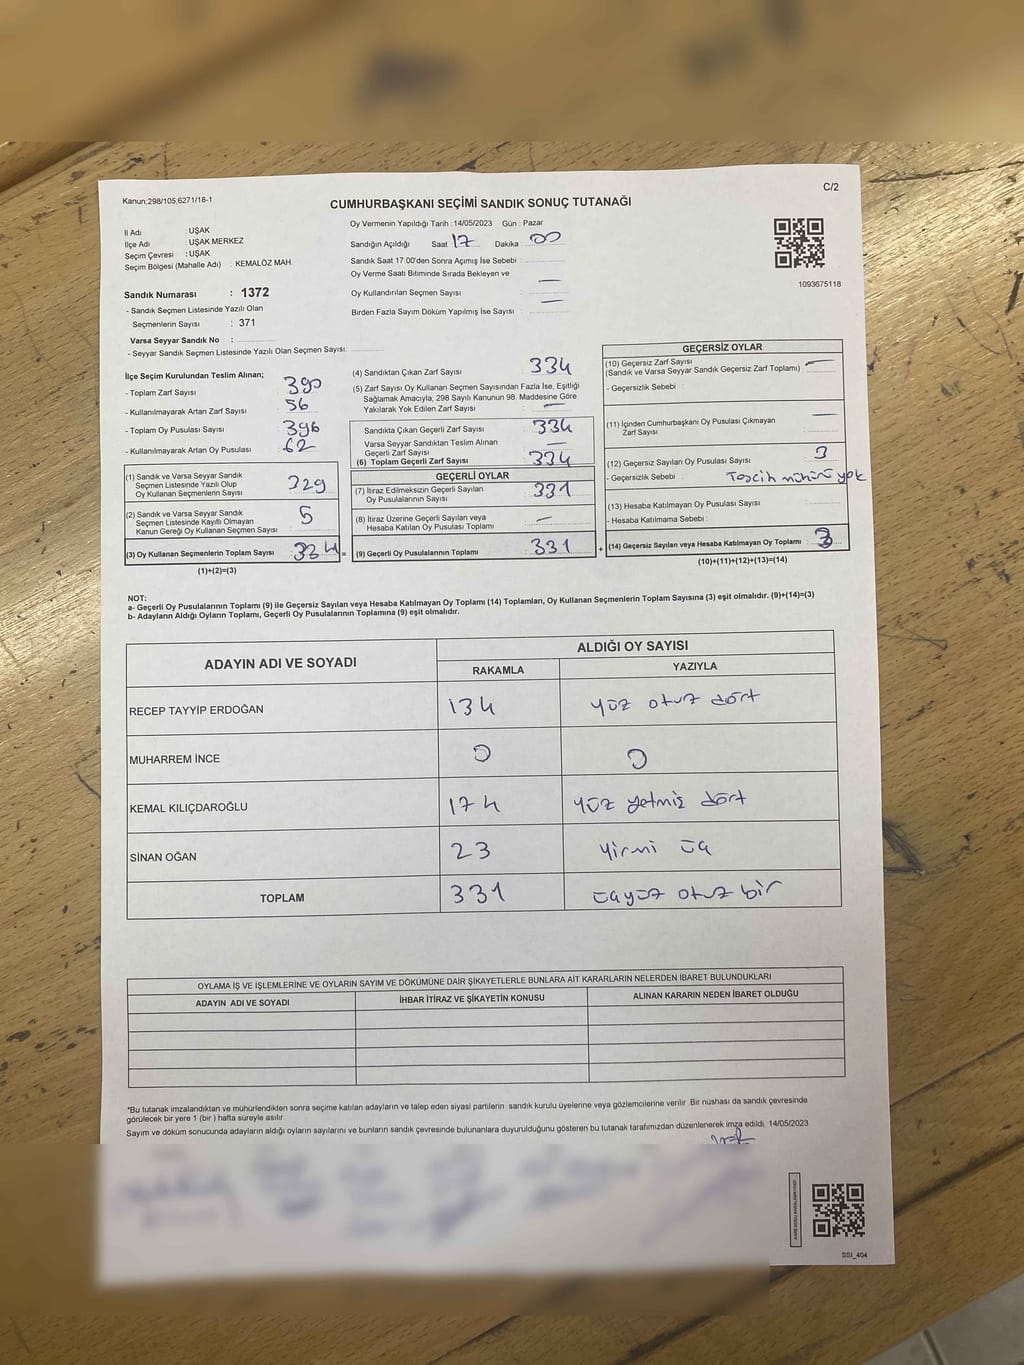 Kanun;298/105,6271/18-1
C/2
CUMHURBAŞKANI SEÇİMİ SANDIK SONUÇ TUTANAĞI
İl Adı : UŞAK
İlçe Adı : UŞAK MERKEZ
Seçim Çevresi : UŞAK
Seçim Bölgesi (Mahalle Adı) : KEMALÖZ MAH.
Sandık Numarası : 1372
- Sandık Seçmen Listesinde Yazılı Olan
Seçmenlerin Sayısı : 371
Varsa Seyyar Sandık No :
- Seyyar Sandık Seçmen Listesinde Yazılı Olan Seçmen Sayısı:
Oy Vermenin Yapıldığı Tarih : 14/05/2023 Gün : Pazar
Sandığın Açıldığı Saat 17 Dakika : 00
Sandık Saat 17:00'den Sonra Açımış İse Sebebi :
Oy Verme Saati Bitiminde Sırada Bekleyen ve
Oy Kullandırılan Seçmen Sayısı : —
Birden Fazla Sayım Döküm Yapılmış İse Sayısı : —
1093675118
İlçe Seçim Kurulundan Teslim Alınan;
- Toplam Zarf Sayısı : 390
- Kullanılmayarak Artan Zarf Sayısı : 56
- Toplam Oy Pusulası Sayısı : 396
- Kullanılmayarak Artan Oy Pusulası : 62
(1) Sandık ve Varsa Seyyar Sandık
Seçmen Listesinde Yazılı Olup
Oy Kullanan Seçmenlerin Sayısı : 329
(2) Sandık ve Varsa Seyyar Sandık
Seçmen Listesinde Kayıtlı Olmayan
Kanun Gereği Oy Kullanan Seçmen Sayısı : 5
(3) Oy Kullanan Seçmenlerin Toplam Sayısı : 334 =
(1)+(2)=(3)
(4) Sandıktan Çıkan Zarf Sayısı : 334
(5) Zarf Sayısı Oy Kullanan Seçmen Sayısından Fazla İse, Eşitliği
Sağlamak Amacıyla, 298 Sayılı Kanunun 98. Maddesine Göre
Yakılarak Yok Edilen Zarf Sayısı : —
Sandıkta Çıkan Geçerli Zarf Sayısı : 334
Varsa Seyyar Sandıktan Teslim Alınan
Geçerli Zarf Sayısı : —
(6) Toplam Geçerli Zarf Sayısı : 334
GEÇERLİ OYLAR
(7) İtiraz Edilmeksizin Geçerli Sayılan
Oy Pusulalarının Sayısı : 331
(8) İtiraz Üzerine Geçerli Sayılan veya
Hesaba Katılan Oy Pusulası Toplamı : —
(9) Geçerli Oy Pusulalarının Toplamı : 331 +
GEÇERSİZ OYLAR
(10) Geçersiz Zarf Sayısı
(Sandık ve Varsa Seyyar Sandık Geçersiz Zarf Toplamı) : —
- Geçersizlik Sebebi :
(11) İçinden Cumhurbaşkanı Oy Pusulası Çıkmayan
Zarf Sayısı : —
(12) Geçersiz Sayılan Oy Pusulası Sayısı : 3
- Geçersizlik Sebebi : Tercih mührü yok
(13) Hesaba Katılmayan Oy Pusulası Sayısı :
- Hesaba Katılmama Sebebi :
(14) Geçersiz Sayılan veya Hesaba Katılmayan Oy Toplamı : 3
(10)+(11)+(12)+(13)=(14)
NOT:
a- Geçerli Oy Pusulalarının Toplamı (9) ile Geçersiz Sayılan veya Hesaba Katılmayan Oy Toplamı (14) Toplamları, Oy Kullanan Seçmenlerin Toplam Sayısına (3) eşit olmalıdır. (9)+(14)=(3)
b- Adayların Aldığı Oyların Toplamı, Geçerli Oy Pusulalarının Toplamına (9) eşit olmalıdır.
ADAYIN ADI VE SOYADI
ALDIĞI OY SAYISI
RAKAMLA YAZIYLA
RECEP TAYYİP ERDOĞAN 134 yüz otuz dört
MUHARREM İNCE 0 0
KEMAL KILIÇDAROĞLU 174 yüz yetmiş dört
SİNAN OĞAN 23 yirmi üç
TOPLAM 331 üçyüz otuz bir
OYLAMA İŞ VE İŞLEMLERİNE VE OYLARIN SAYIM VE DÖKÜMÜNE DAİR ŞİKAYETLERLE BUNLARA AİT KARARLARIN NELERDEN İBARET BULUNDUKLARI
ADAYIN ADI VE SOYADI İHBAR İTİRAZ VE ŞİKAYETİN KONUSU ALINAN KARARIN NEDEN İBARET OLDUĞU
*Bu tutanak imzalandıktan ve mühürlendikten sonra seçime katılan adayların ve talep eden siyasi partilerin sandık kurulu üyelerine veya gözlemcilerine verilir. Bir nüshası da sandık çevresinde
görülecek bir yere 1 (bir ) hafta süreyle asılır.
Sayım ve döküm sonucunda adayların aldığı oyların sayılarını ve bunların sandık çevresinde bulunanlara duyurulduğunu gösteren bu tutanak tarafımızdan düzenlenerek imza edildi. 14/05/2023
SSI_404